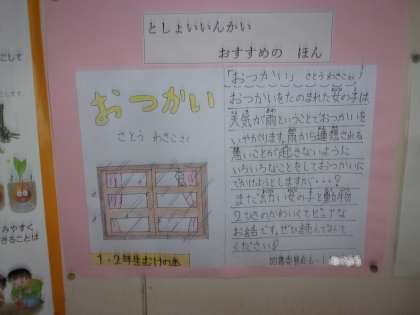 としょいいんかい
おすすめの ほん
おつかい
さとう わきこ さく
1・2年生むけの本
「おつかい」 さとう わきこ 作
おつかいをたのまれた女の子は
天気が雨ということでおつかいを
いやがります。雨から連想される
悪いことが起きないように
いろいろなことをしておつかいに
でかけようとしますが・・・?
まだ幼い女の子と動物
2ひきのかわいくてピュアな
お話です。ぜひ読んでみて
ください!
図書委員会 6-1
こして
みやすく
きることは